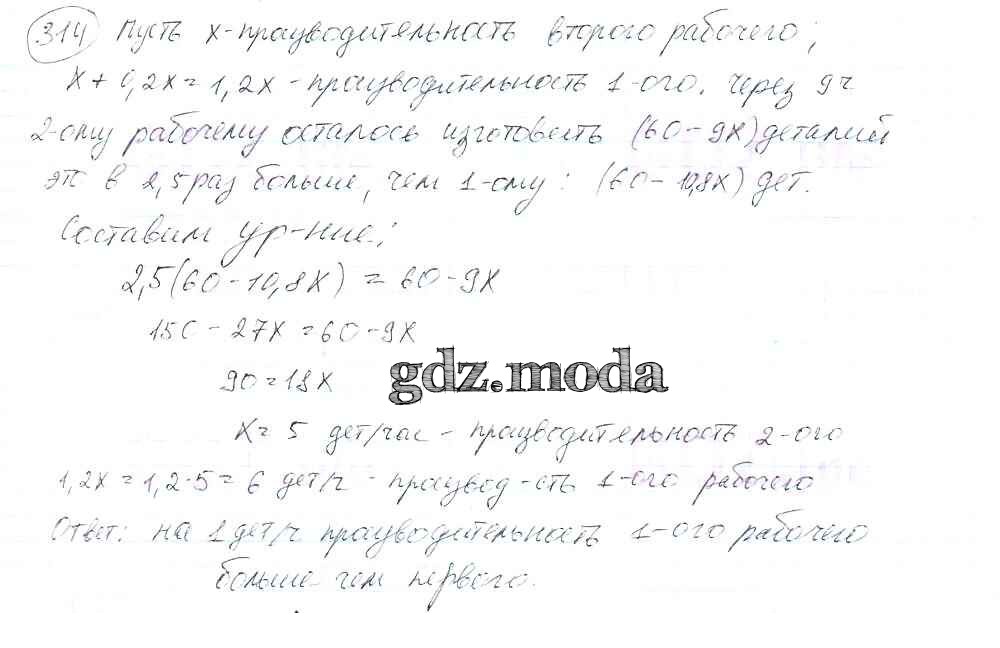 314 Пусть x - производительность второго рабочего;
x + 0,2x = 1,2x - производительность 1-ого. Через 9ч
2-ому рабочему осталось изготовить (60 - 9x) деталий
эт в 2,5 раз больше, чем 1-ому: (60 - 10,8x) дет.
Составим ур-ние:
2,5(60 - 10,8x) = 60 - 9x
150 - 27x = 60 - 9x
90 = 18x
gdz.moda
x = 5 дет/час - производительность 2-ого
1,2x = 1,2·5 = 6 дет/ч - произвед-сть 1-ого рабочего
Ответ: на 1 дет/ч производительность 1-ого рабочего
больше чем первого.